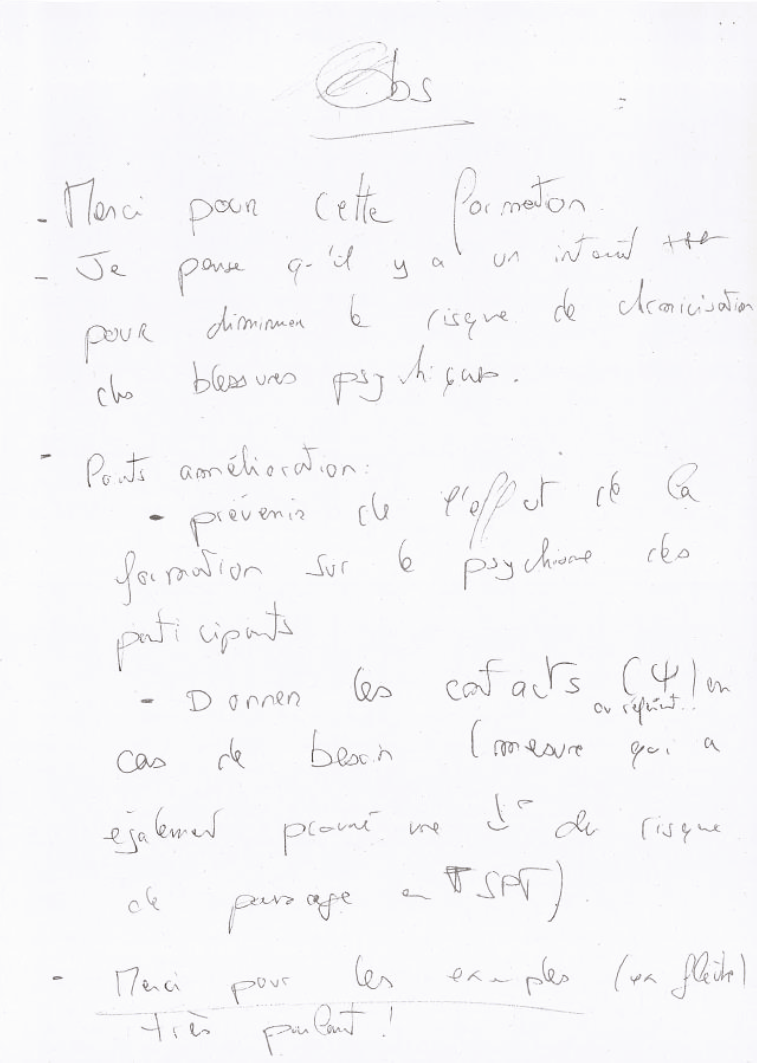 Obs
- Merci pour cette formation.
- Je pense qu'il y a un intérêt +++
pour diminuer le risque de chronicisation
des blessures psychiques.
- Points amélioration:
- prévenir de l'effet de la
formation sur le psychisme des
participants
- Donner les contacts (Ψ) en
ou
cas de besoin (mesure qui a
également prouvé une ↓° du risque
de passage en TSPT)
- Merci pour les exemples
très parlant!